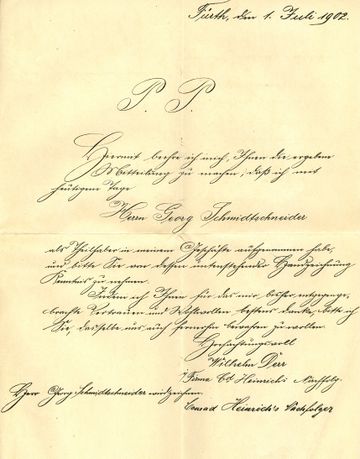 Fürth, den 1. Juli 1902.
P. P.
Hiermit beehre ich mich, Ihnen die ergebene
Mitteilung zu machen, daß ich mit
heutigem Tage
Herrn Georg Schmidtschneider
als Theilhaber in meinem Geschäfte aufgenommen habe,
und bitte Sie von dessen untenstehender Handzeichnung
Kenntnis zu nehmen.
Indem ich Ihnen für das mir bisher entgegenge-
brachte Vertrauen und Wohlwollen bestens danke, bitte ich
Sie, dasselbe uns auch fernerhin bewahren zu wollen.
Hochachtungsvoll
Wilhelm Dürr
Firma Cd. Heinrich's Nachfolg.
Herr Georg Schmidtschneider wird zeichnen:
Conrad Heinrich's Nachfolger